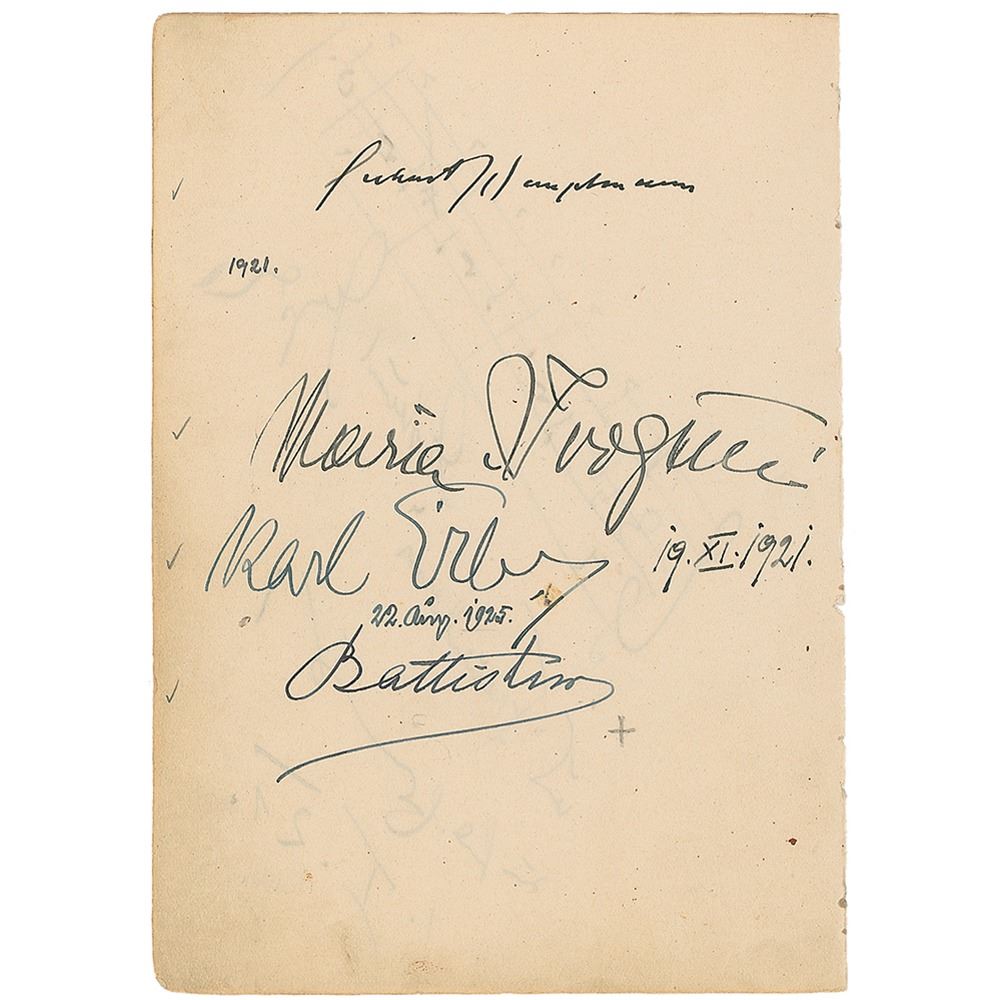 Gerhart Hauptmann
1921.
Maria Ivogün
Karl Erb 19. XI. 1921.
22. Aug. 1925.
Battistini